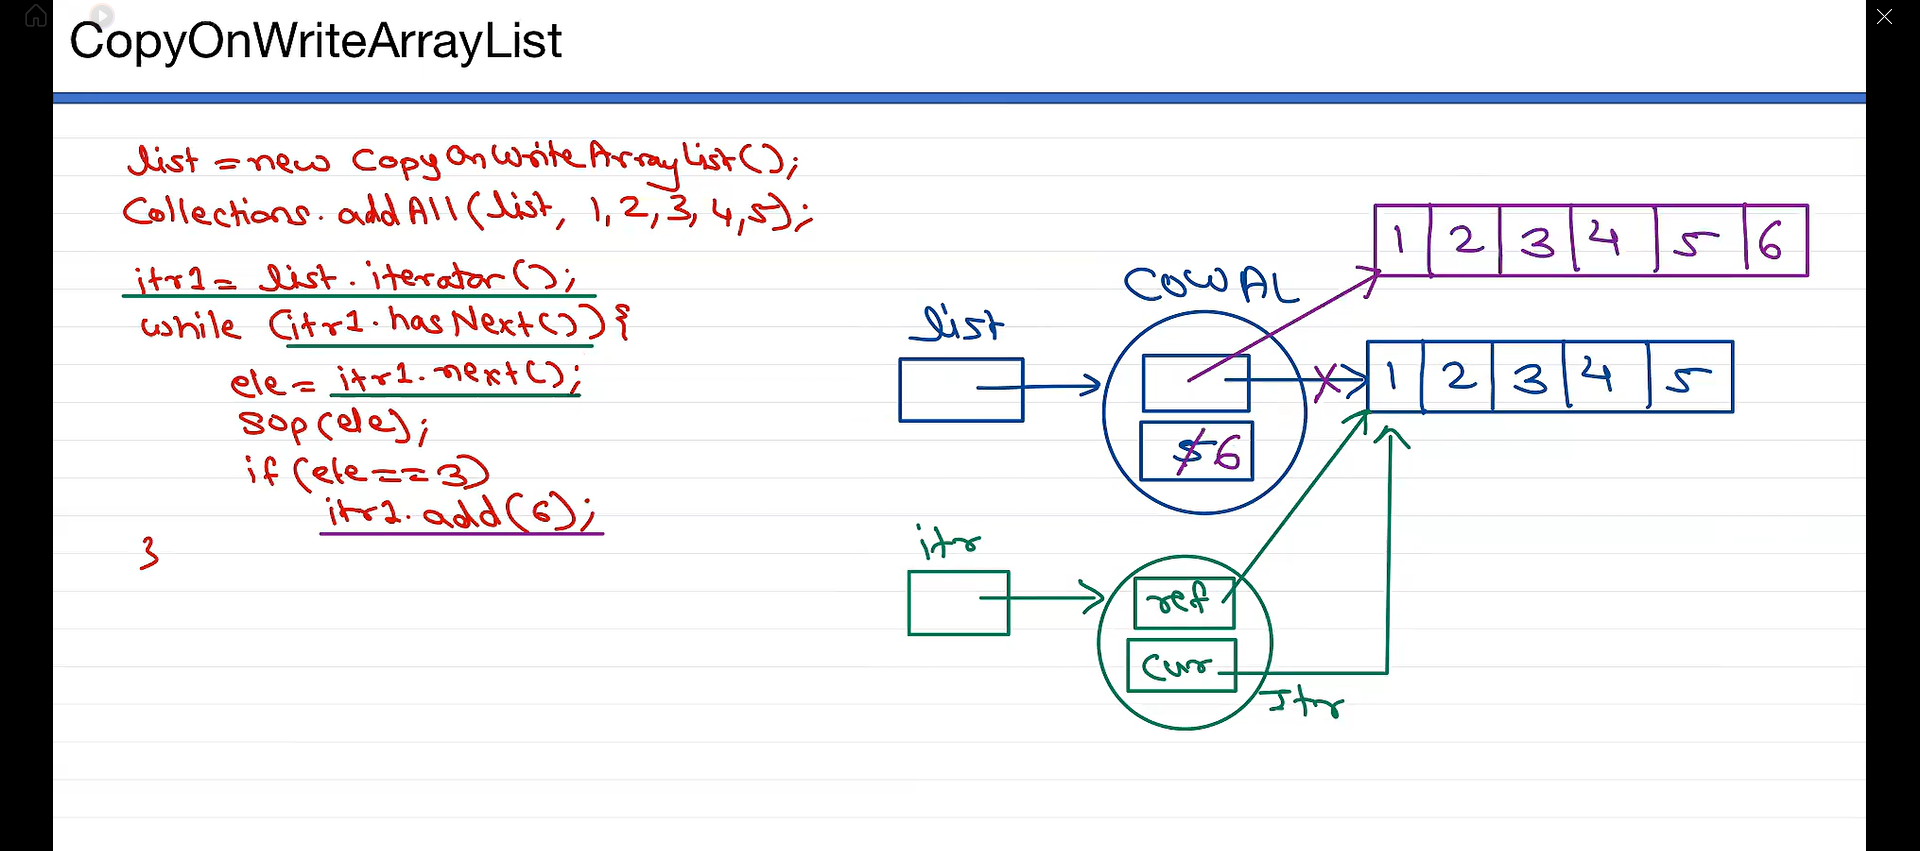 CopyOnWriteArrayList
list = new CopyOnWriteArrayList();
Collections.addAll(list, 1,2,3,4,5);
itr1 = list.iterator();
while (itr1.hasNext()){
ele = itr1.next();
sop(ele);
if (ele==3)
itr1.add(6);
}
1 2 3 4 5 6
COWAL
list
1 2 3 4 5
5 6
itr
ref
Cur
Itr